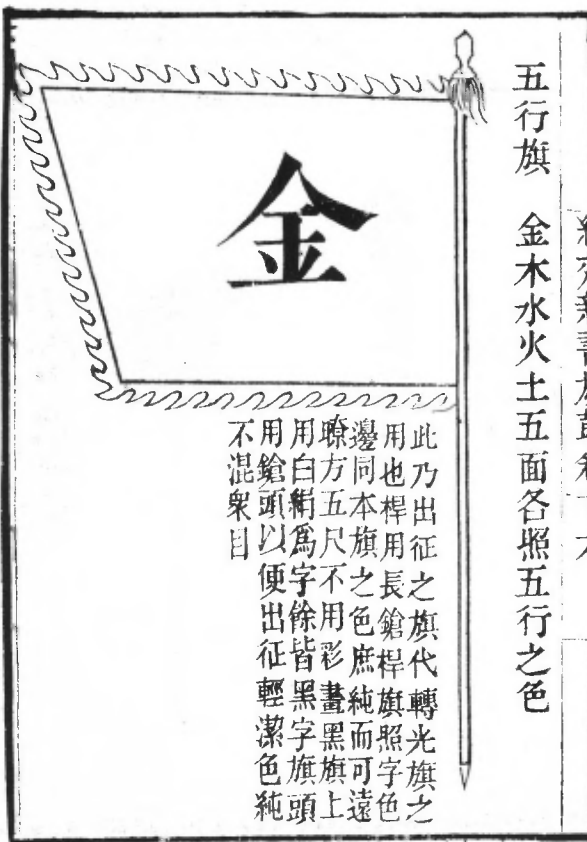 五行旗　金木水火土五面各照五行之色
金
此乃出征之旗代轉光旗之
用也桿用長鎗桿旗照字色
邊同本旗之色庶純而可遠
瞭方五尺不用彩畫黑旗上
用白絹爲字餘皆黑字旗頭
用鎗頭以便出征輕潔色純
不混衆目